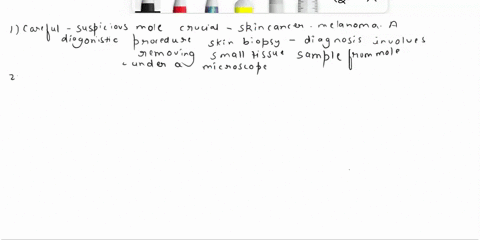 1) Careful - suspicious mole crucial - skin cancer - melanoma. A
diagonistic procedure skin biopsy - diagnosis involves
removing small tissue sample from mole
under a microscope
2